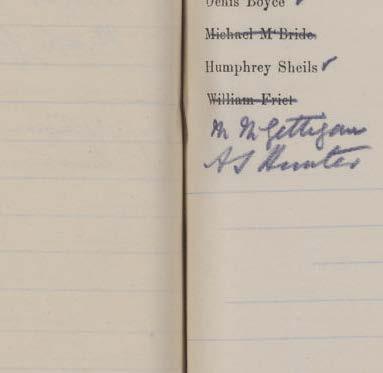 Denis Boyce ✓
Michael M'Bride
Humphrey Sheils ✓
William Friel
M McGettigan
A S Hunter